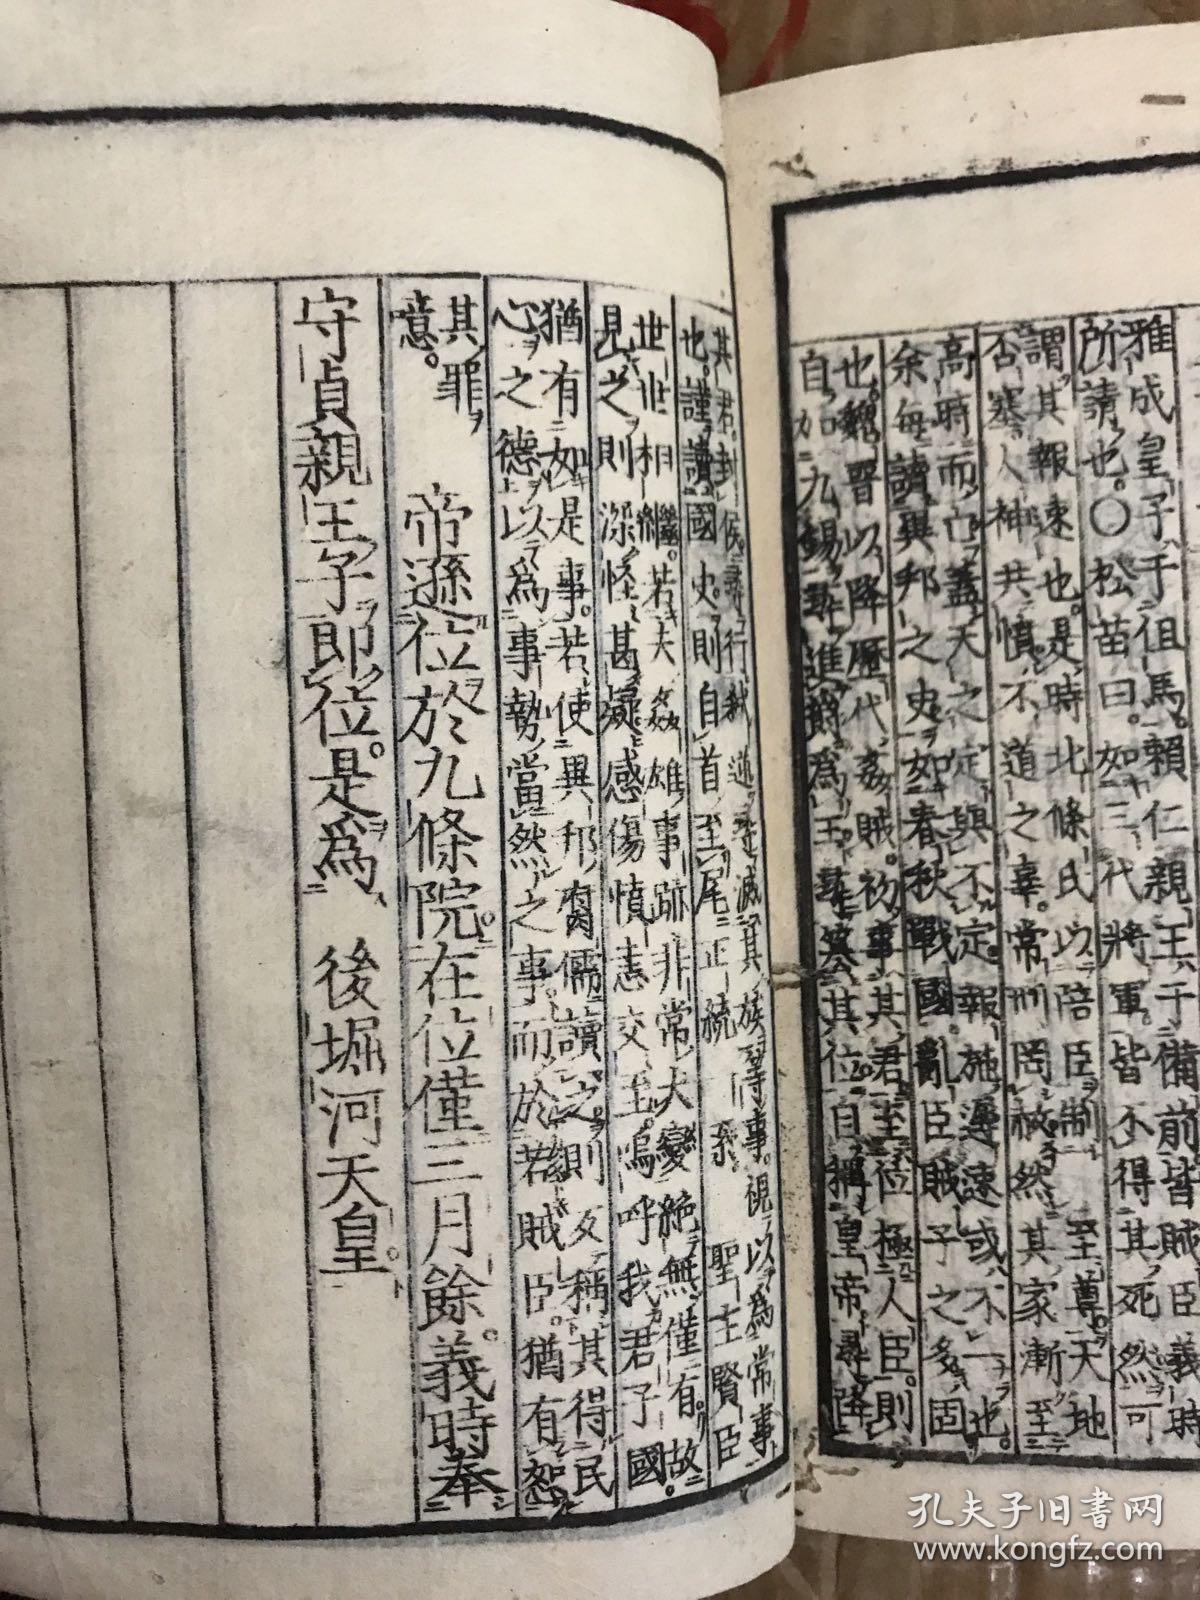 雅成皇子于但馬賴仁親王于備前皆賊臣義時
所請也。○松苗曰。如三代將軍。皆不得其死然可
謂其報速也。是時北條氏以陪臣制至尊。天地
否塞人神共憤不道之辜。常刑罔赦然其家漸至
高時而亡。蓋天之定與不定。報施遲速或不一也。
余每讀異邦之史如春秋戰國。亂臣賊子之多固
也魏晋以降歷代姦賊。初事其君至位極人臣。則
自加九錫尋進爵為王。尋簒其位自稱皇帝尋降
其君封侯。尋行弑逆遂滅其族等事。視以為常事
也。謹讀國史。則自首至尾正統系聖主賢臣
世世相繼。若夫姦雄事跡非常大變絶無僅有。故
見之則深怪甚疑感傷憤恚交至。嗚呼我君子國。
猶有如是事。若使異邦腐儒讀之。則又稱其得民
心之德以為事勢當然之事。而於若賊臣。猶有恕
其罪
意。
帝遜位於九條院。在位僅三月餘。義時奉
守貞親王子即位。是為 後堀河天皇。
孔夫子旧书网
www.kongfz.com